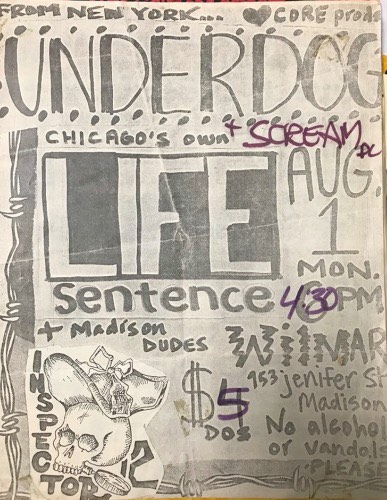 FROM NEW YORK... CORE prods
UNDERDOG
CHICAGO'S own + SCREAM DC
LIFE
AUG.
1
MON.
sentence 4:30 PM
+ Madison
DUDES
WiMAR
953 jenifer St
Madison
$5
DOS
No alcohol
or vandals
PLEASE
INSPECTOR 12